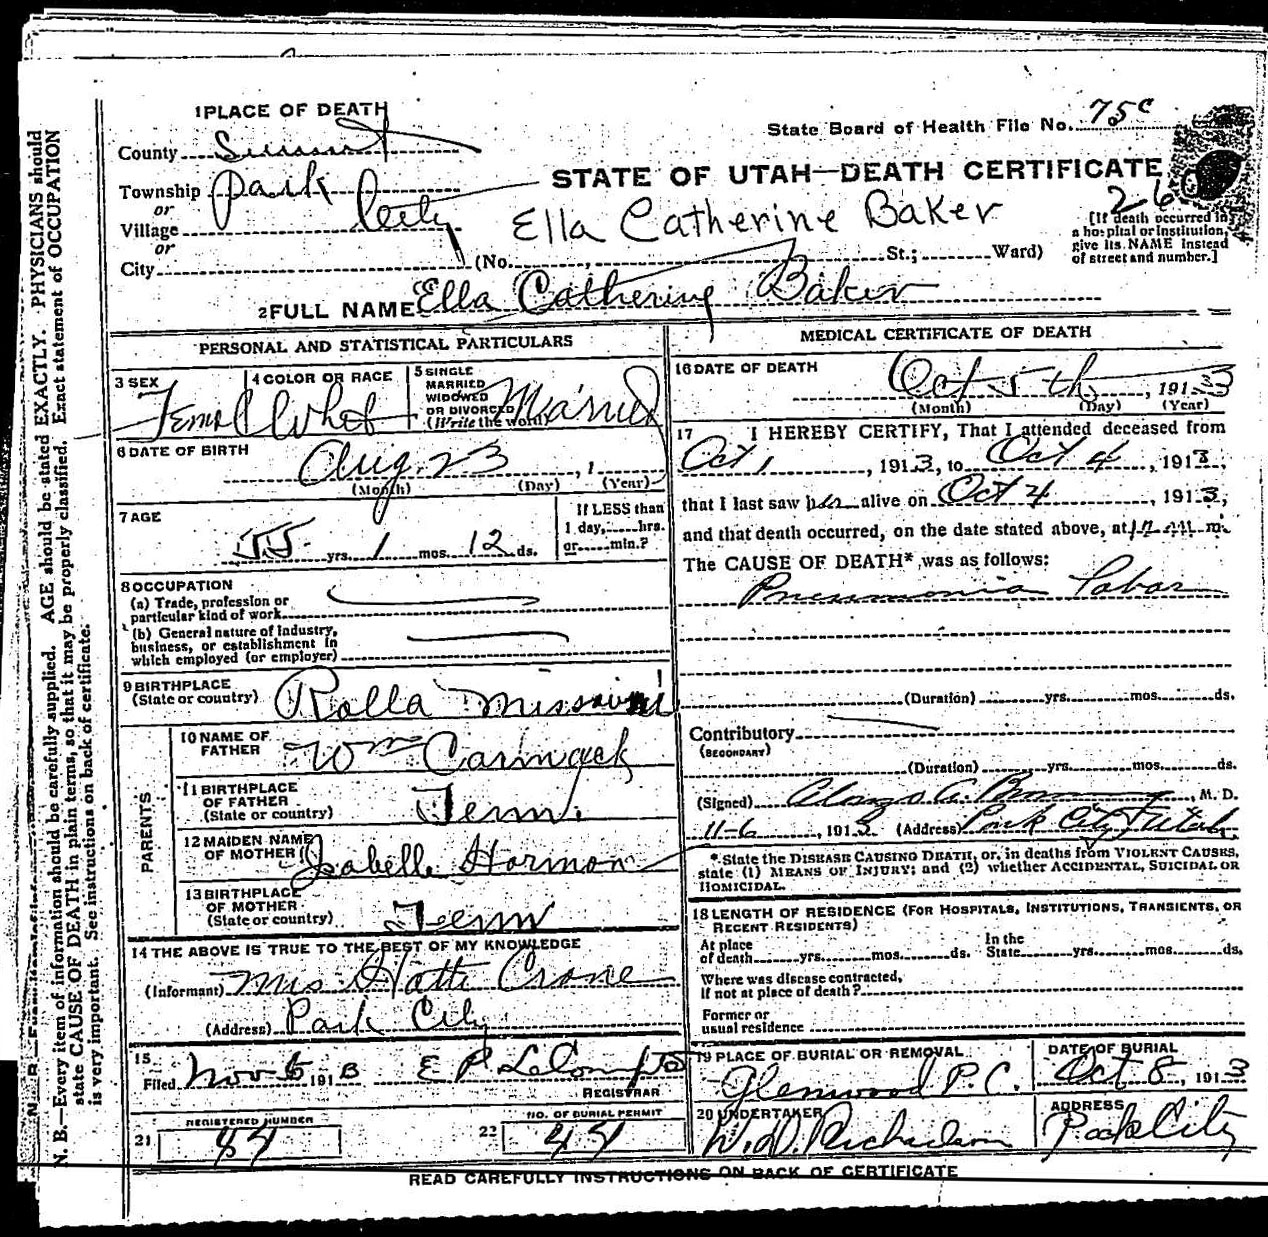 1 PLACE OF DEATH
State Board of Health File No. 75c
County Summit
Township Park
or
Village City
or
City
STATE OF UTAH—DEATH CERTIFICATE
26
Ella Catherine Baker
[If death occurred in
a hospital or institution,
give its NAME instead
of street and number.]
(No. , St.; Ward)
2 FULL NAME Ella Catherine Baker
PERSONAL AND STATISTICAL PARTICULARS
3 SEX
4 COLOR OR RACE
5 SINGLE
MARRIED
WIDOWED
OR DIVORCED
(Write the word) Married
6 DATE OF BIRTH
Aug 23 , 1
(Month) (Day) (Year)
7 AGE
55 yrs. 1 mos. 12 ds.
If LESS than
1 day, hrs.
or min.?
8 OCCUPATION
(a) Trade, profession or
particular kind of work
(b) General nature of industry,
business, or establishment in
which employed (or employer)
9 BIRTHPLACE
(State or country) Rolla Missouri
PARENTS
10 NAME OF
FATHER Wm Carmack
11 BIRTHPLACE
OF FATHER
(State or country) Tenn.
12 MAIDEN NAME
OF MOTHER Isabelle Harmon
13 BIRTHPLACE
OF MOTHER
(State or country) Tenn
14 THE ABOVE IS TRUE TO THE BEST OF MY KNOWLEDGE
(Informant) Mrs Hatti Crone
(Address) Park City
15
Filed Nov 6 1913
REGISTRAR
REGISTERED NUMBER
21
NO. OF BURIAL PERMIT
22
MEDICAL CERTIFICATE OF DEATH
16 DATE OF DEATH
Oct 5th , 1913
(Month) (Day) (Year)
17 I HEREBY CERTIFY, That I attended deceased from
Oct 1 , 1913, to Oct 4 , 1913,
that I last saw her alive on Oct 4 , 1913,
and that death occurred, on the date stated above, at m.
The CAUSE OF DEATH* was as follows:
Pneumonia Lobar
(Duration) yrs. mos. ds.
Contributory
(SECONDARY)
(Duration) yrs. mos. ds.
(Signed) , M. D.
11-6 , 1913 (Address) Park City Utah
*State the DISEASE CAUSING DEATH, or, in deaths from VIOLENT CAUSES,
state (1) MEANS OF INJURY; and (2) whether ACCIDENTAL, SUICIDAL OR
HOMICIDAL.
18 LENGTH OF RESIDENCE (FOR HOSPITALS, INSTITUTIONS, TRANSIENTS, OR
RECENT RESIDENTS)
At place
of death yrs. mos. ds.
In the
State yrs. mos. ds.
Where was disease contracted,
if not at place of death?
Former or
usual residence
19 PLACE OF BURIAL OR REMOVAL
Glenwood P.C.
DATE OF BURIAL
Oct 8 , 1913
20 UNDERTAKER
W.D. Richardson
ADDRESS
Park City
READ CAREFULLY INSTRUCTIONS ON BACK OF CERTIFICATE
N. B.—Every item of information should be carefully supplied. AGE should be stated EXACTLY. PHYSICIANS should
state CAUSE OF DEATH in plain terms, so that it may be properly classified. Exact statement of OCCUPATION
is very important. See instructions on back of certificate.